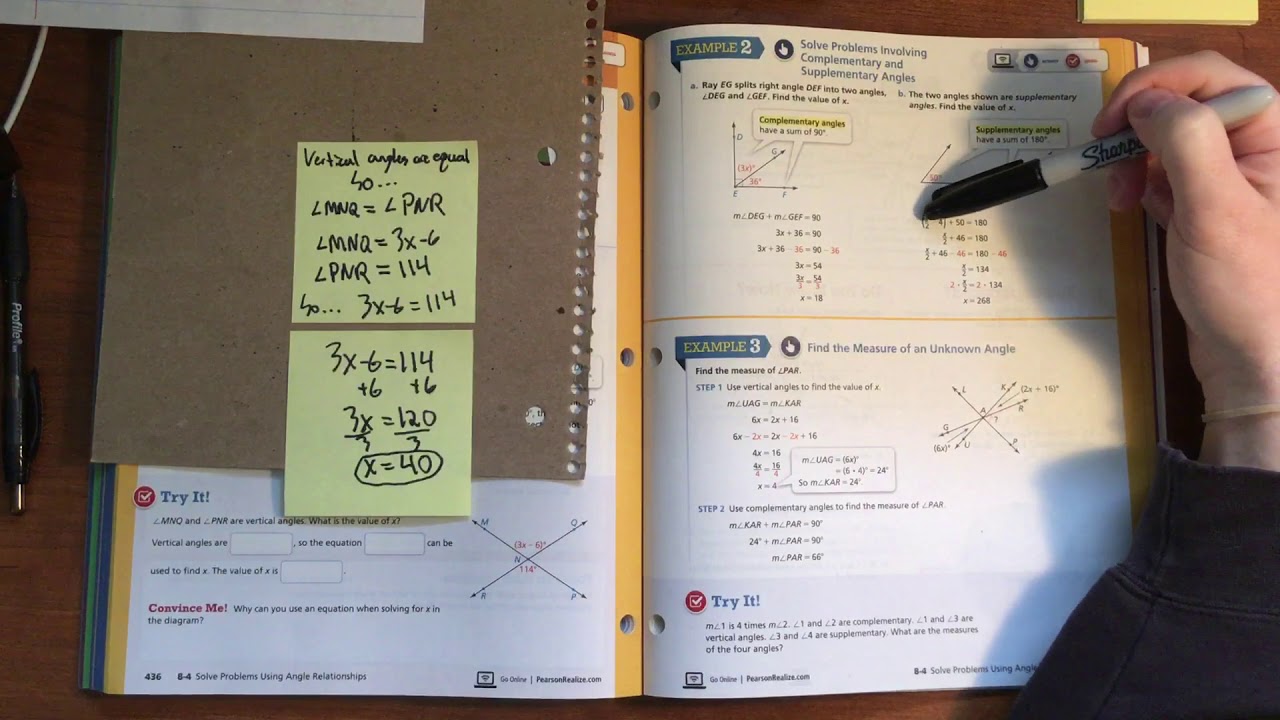 Vertical angles are equal
So...
∠MNQ = ∠PNR
∠MNQ = 3x-6
∠PNR = 114
So... 3x-6 = 114
3x-6 = 114
+6 +6
3x = 120
3 3
x = 40
Try It!
∠MNQ and ∠PNR are vertical angles. What is the value of x?
Vertical angles are , so the equation can be
used to find x. The value of x is .
M
Q
(3x – 6)°
N
114°
R
P
Convince Me! Why can you use an equation when solving for x in
the diagram?
436 8-4 Solve Problems Using Angle Relationships
Go Online | PearsonRealize.com
EXAMPLE 2
Solve Problems Involving
Complementary and
Supplementary Angles
a. Ray EG splits right angle DEF into two angles,
∠DEG and ∠GEF. Find the value of x.
Complementary angles
have a sum of 90°.
D
G
(3x)°
36°
E
F
m∠DEG + m∠GEF = 90
3x + 36 = 90
3x + 36 – 36 = 90 – 36
3x = 54
3x/3 = 54/3
x = 18
b. The two angles shown are supplementary
angles. Find the value of x.
Supplementary angles
have a sum of 180°.
50°
+ 50 = 180
x/2 + 46 = 180
x/2 + 46 – 46 = 180 – 46
x/2 = 134
2 · x/2 = 2 · 134
x = 268
EXAMPLE 3
Find the Measure of an Unknown Angle
Find the measure of ∠PAR.
STEP 1 Use vertical angles to find the value of x.
m∠UAG = m∠KAR
6x = 2x + 16
6x – 2x = 2x – 2x + 16
4x = 16
4x/4 = 16/4
x = 4
m∠UAG = (6x)°
= (6 · 4)° = 24°
So m∠KAR = 24°.
L
K
(2x + 16)°
A
R
?
G
(6x)°
U
P
STEP 2 Use complementary angles to find the measure of ∠PAR.
m∠KAR + m∠PAR = 90°
24° + m∠PAR = 90°
m∠PAR = 66°
Try It!
m∠1 is 4 times m∠2. ∠1 and ∠2 are complementary. ∠1 and ∠3 are
vertical angles. ∠3 and ∠4 are supplementary. What are the measures
of the four angles?
Go Online | PearsonRealize.com
8-4 Solve Problems Using
Sharpie
Profile